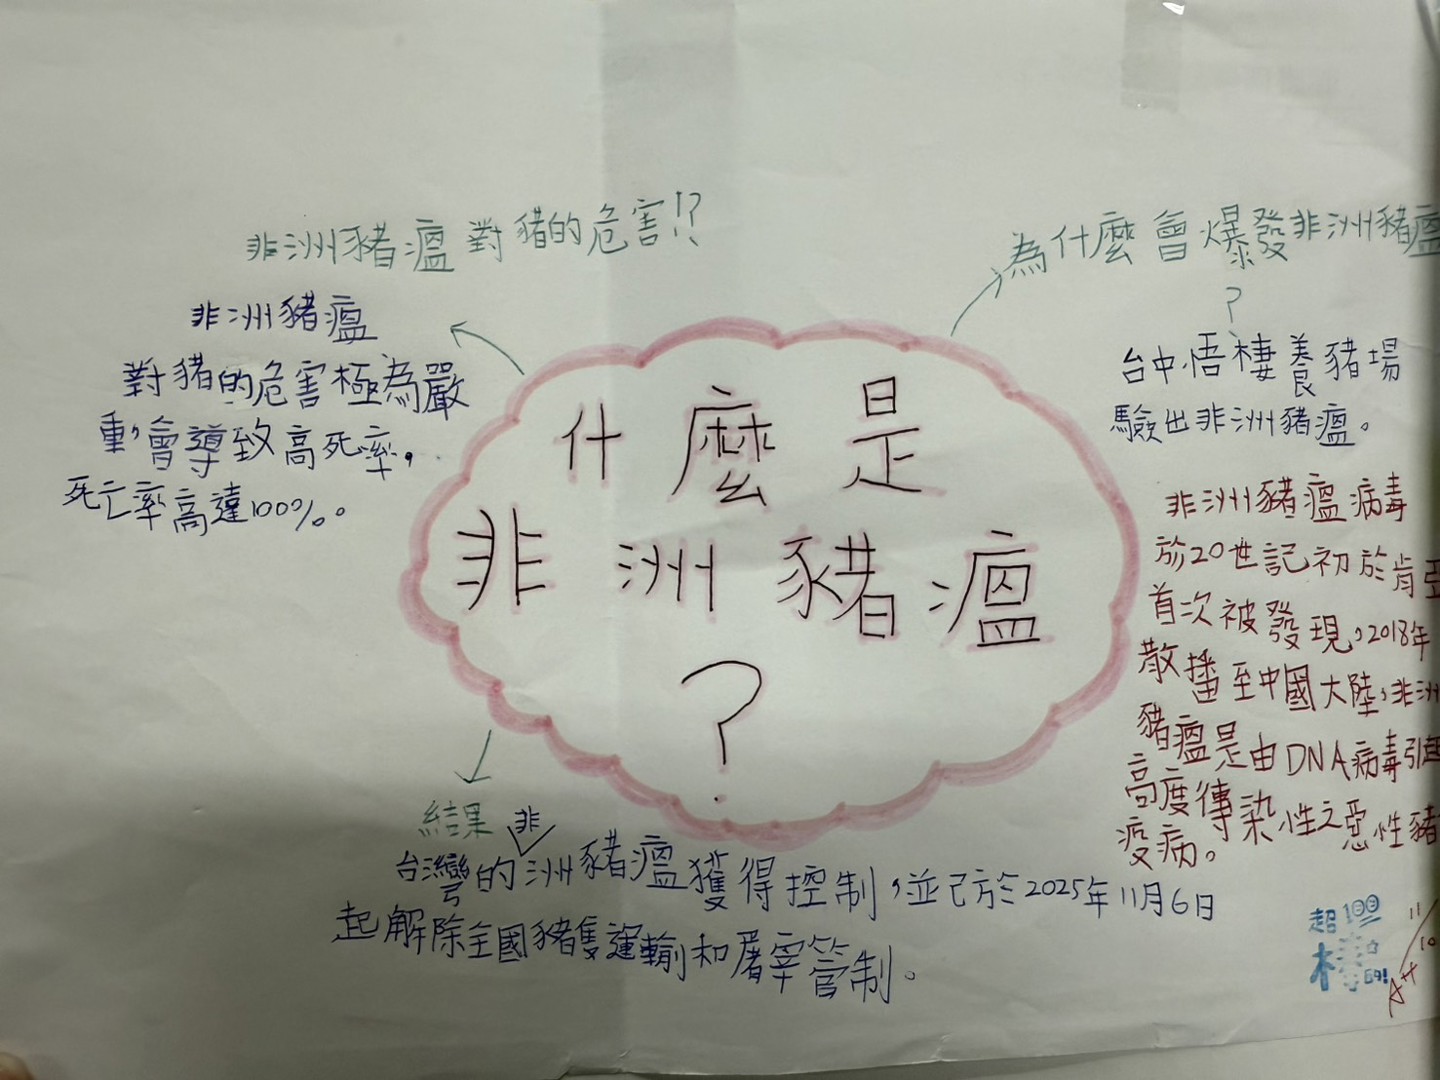 什麼是
非洲豬瘟
?
非洲豬瘟對豬的危害!?
非洲豬瘟
對豬的危害極為嚴
重,會導致高死率,
死亡率高達100%。
為什麼會爆發非洲豬瘟
?
台中悟棲養豬場
驗出非洲豬瘟。
非洲豬瘟病毒
於20世記初於肯亞
首次被發現,2018年
散播至中國大陸,非洲
豬瘟是由DNA病毒引起
高度傳染性之惡性豬
疫病。
結果
台灣的非洲豬瘟獲得控制,並已於2025年11月6日
起解除全國豬隻運輸和屠宰管制。
超100
棒
A++
11/10